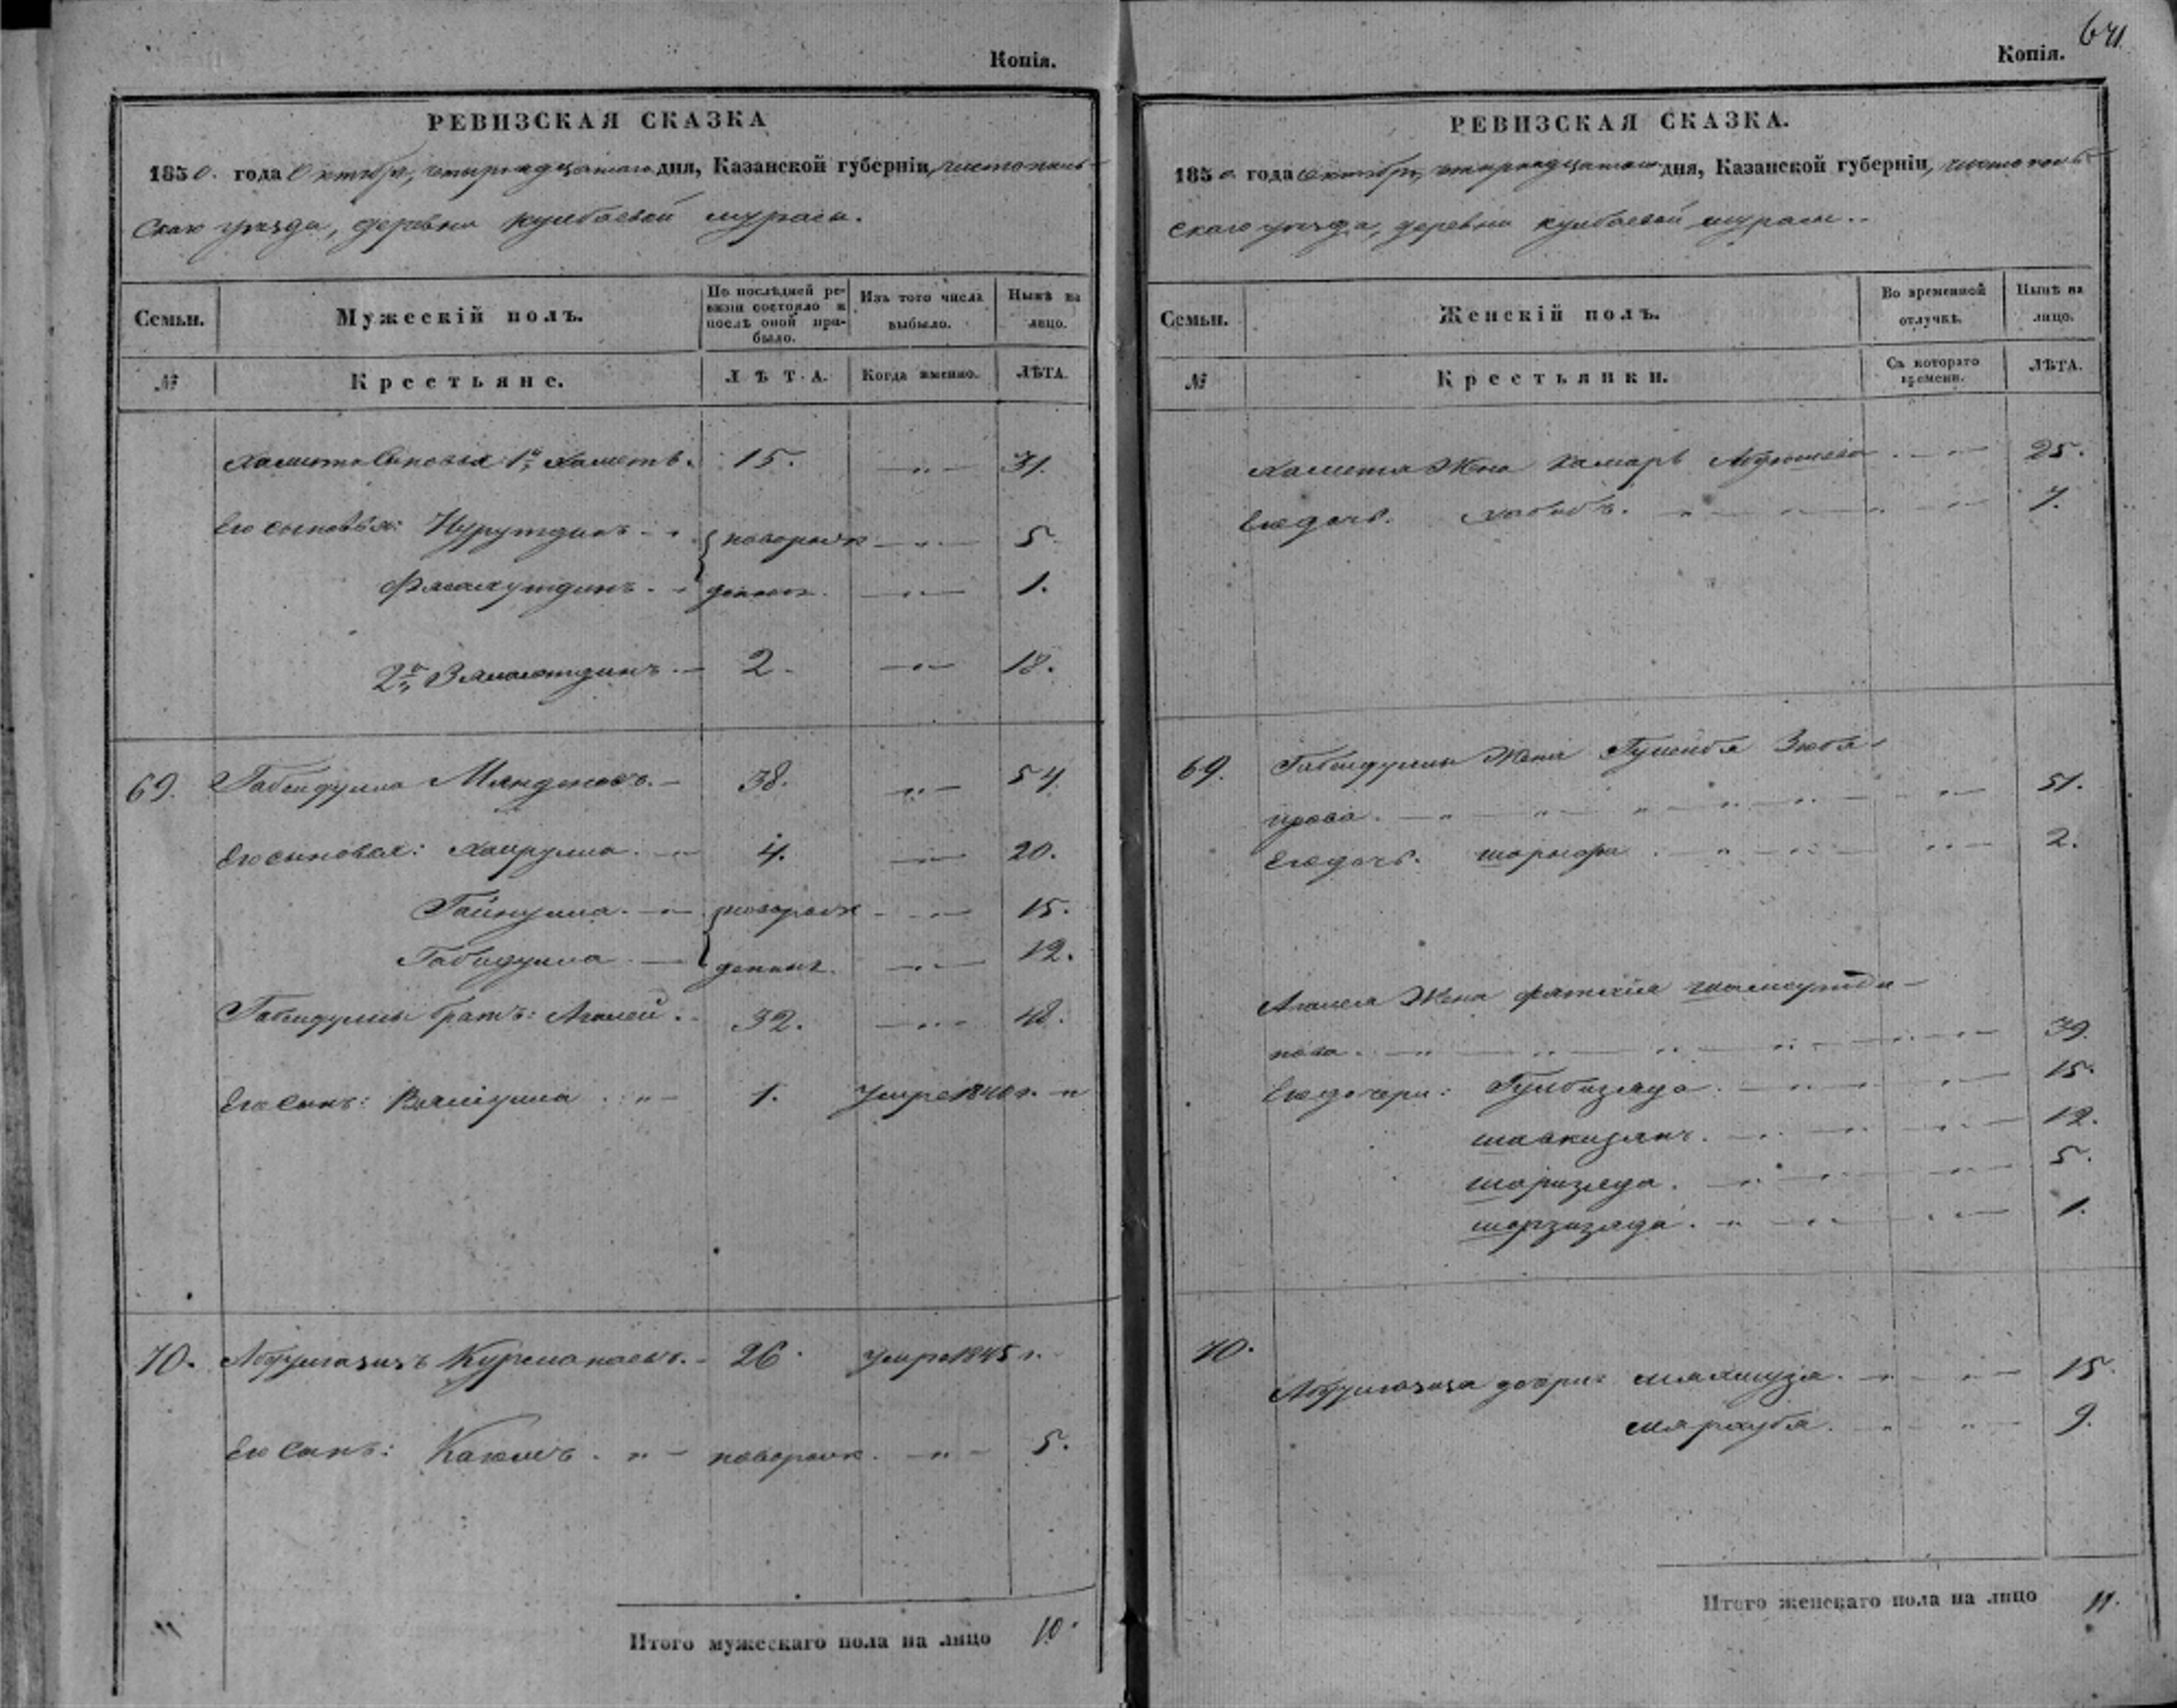 Копія.
РЕВИЗСКАЯ СКАЗКА
1850. года Октября, четырнадцатаго дня, Казанской губерніи, чистополь-
скаго уѣзда, деревни кулбаевой мурасы.
Семьи.
Мужескій полъ.
По послѣдней ре-
визіи состояло и
послѣ оной при-
было.
Изъ того числа
выбыло.
Нынѣ на
лицо.
№
Крестьяне.
ЛѢТА.
Когда именно.
ЛѢТА.
Хамита сыновья 1й, Хаметъ. 15. 31.
Его сыновья: Нурутдинъ новорож 5
денныя. 1.
2й 2 18.
69. Габейдулла 38. 54
Его сыновья: Хайрулла. 4. 20.
Гайнулла. новорож 15.
Габидулла денныя. 12.
Габейдуллы братъ: Апалей. 32. 48.
Его сынъ: Валиулла 1. Умре 1840 г.
70. Абдулгазизъ Курманаевъ. 26 умре 1845 г.
Его сынъ: Каюмъ. новорож. 5.
Итого мужескаго пола на лицо 10.
641
Копія.
РЕВИЗСКАЯ СКАЗКА.
1850 года октября, четырнадцатаго дня, Казанской губерніи, чистополь-
скаго уѣзда, деревни кулбаевой мурасы.
Семьи.
Женскій полъ.
Во временной
отлучкѣ.
Нынѣ на
лицо.
№
Крестьянки.
Съ котораго
времени.
ЛѢТА.
Хамета жена Камаръ 25.
Ея дочь. хабибъ. 7.
69. Габейдуллы жена Зюба-
ирова. 51.
Ея дочь. 2.
Апалея жена фатхія
нова. 39.
Ея дочери: Гулбизяда. 15.
12.
шаризяда. 5.
1.
70.
Абдулгазиза дочери: 15.
9.
Итого женскаго пола на лицо 11.